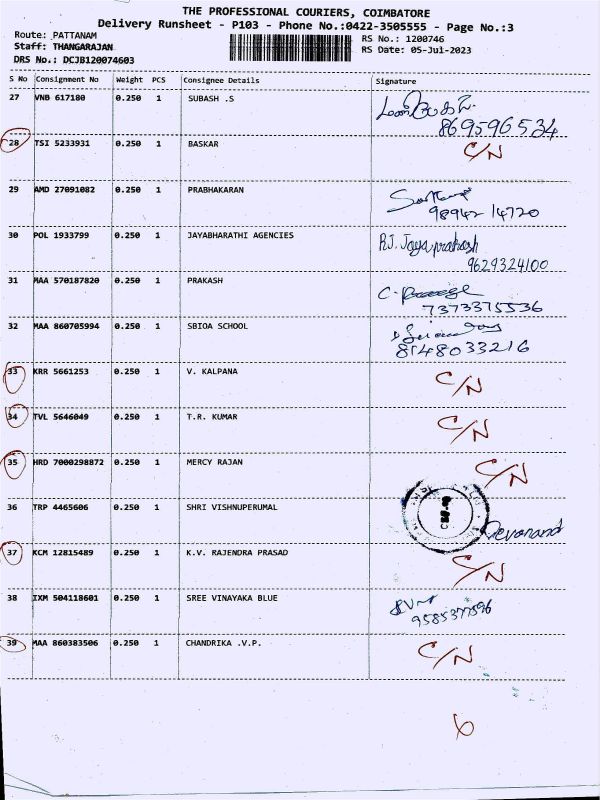 THE PROFESSIONAL COURIERS, COIMBATORE
Delivery Runsheet - P103 - Phone No.:0422-3505555 - Page No.:3
Route: PATTANAM
RS No.: 1200746
Staff: THANGARAJAN
RS Date: 05-Jul-2023
DRS No.: DCJB120074603
S No Consignment No Weight PCS Consignee Details Signature
27 VNB 617180 0.250 1 SUBASH .S
869596534
28 TSI 5233931 0.250 1 BASKAR C/N
29 AMD 27091082 0.250 1 PRABHAKARAN
98942 14720
30 POL 1933799 0.250 1 JAYABHARATHI AGENCIES R.J. Jayaprakash
9629324100
31 MAA 570187820 0.250 1 PRAKASH
7373375536
32 MAA 860705994 0.250 1 SBIOA SCHOOL
8148033216
33 KRR 5661253 0.250 1 V. KALPANA C/N
34 TVL 5646049 0.250 1 T.R. KUMAR C/N
35 HRD 7000298872 0.250 1 MERCY RAJAN C/N
36 TRP 4465606 0.250 1 SHRI VISHNUPERUMAL Devanand
37 KCM 12815489 0.250 1 K.V. RAJENDRA PRASAD C/N
38 IXM 504118601 0.250 1 SREE VINAYAKA BLUE
9585377596
39 MAA 860383506 0.250 1 CHANDRIKA .V.P. C/N